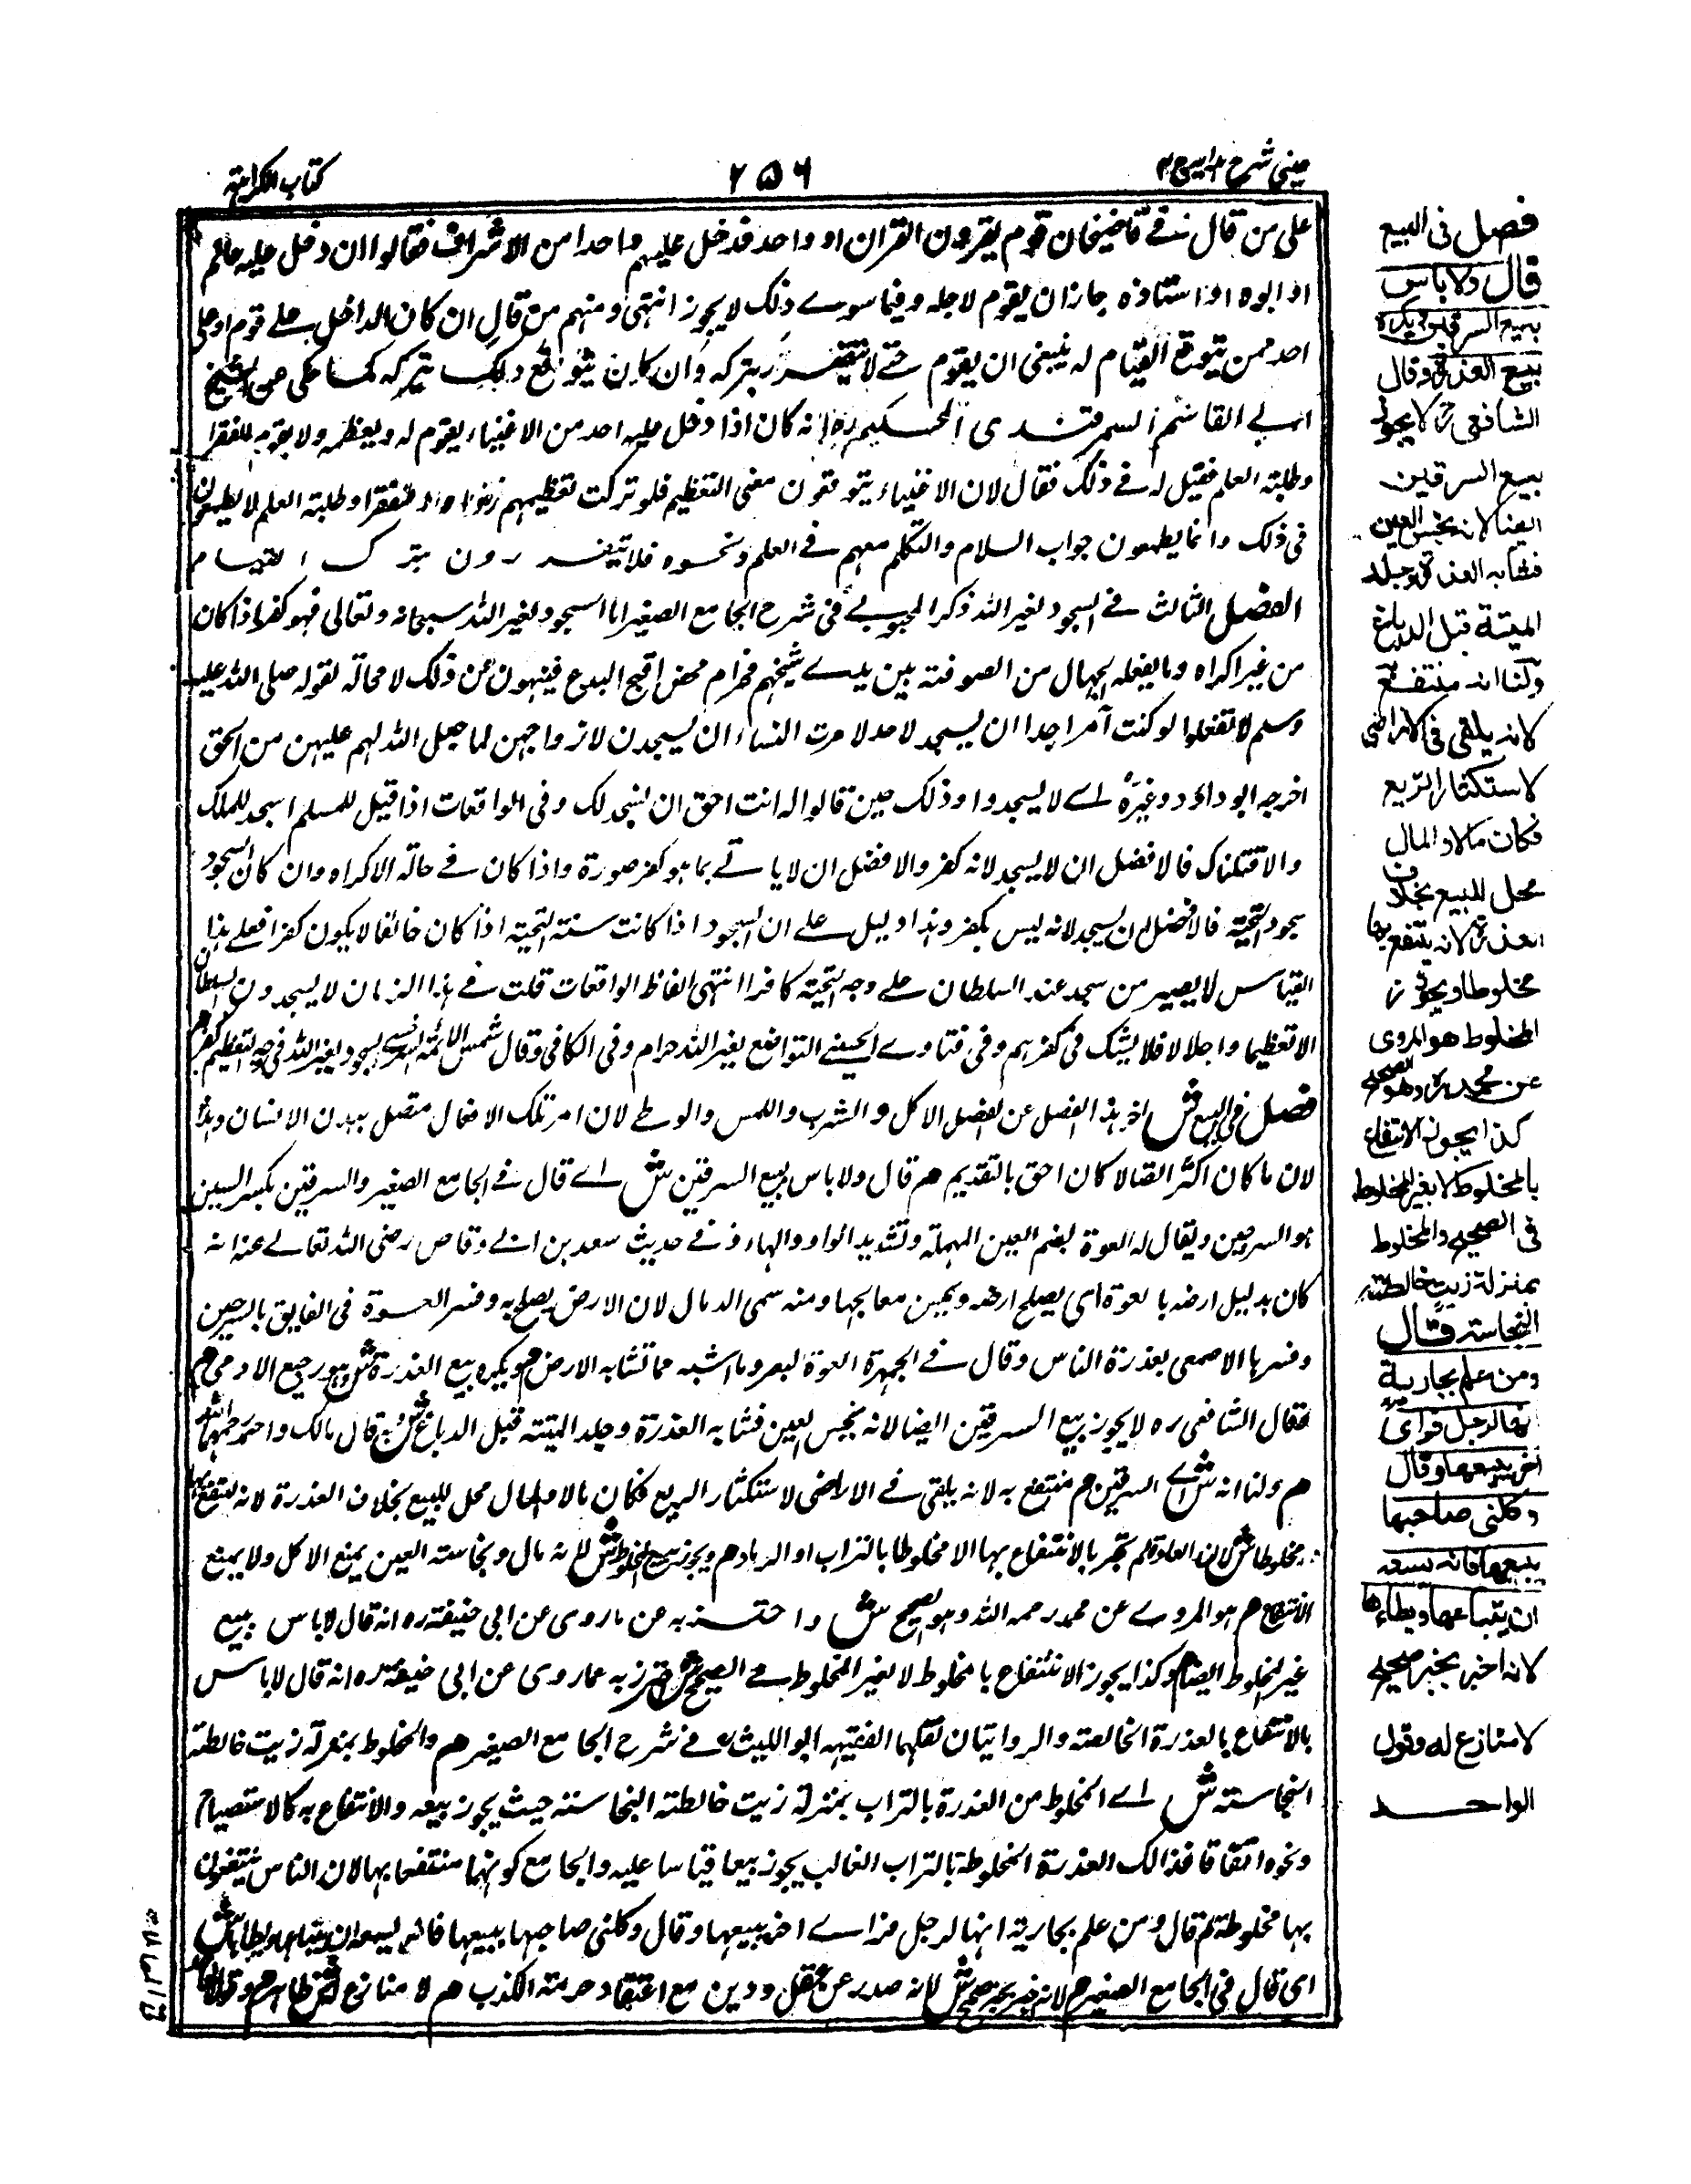 عینی شرح ہدایہ ج ۴
۲۵۶
کتاب الکراہیۃ
علی من قال فے قاضیخان قوم یقرءون القران او واحد فدخل علیہم واحد امن الاشراف فقالوا ان دخل علیہ عالم
او ابوہ او استاذہ جازان یقوم لاجلہ وفیما سوے ذلک لایجوز انتہی ومنہم من قال ان کان الداخل علے قوم اوعلی
احد ممن یتوقع القیام لہ ینبغی ان یقوم حتے لا یتضرر بترکہ وان کان یتوقع ذلک بترکہ کما حکی عن الشیخ
ابے القاسم السمرقندی الحکیم رہ انہ کان اذا دخل علیہ احد من الاغنیاء یقوم لہ ویعظمہ ولا یقوم للفقرا
وطلبۃ العلم فقیل لہ فے ذلک فقال لان الاغنیاء یتوقعون منی التعظیم فلو ترکت تعظیمہم والفقرا وطلبۃ العلم لایطمعون
فی ذلک وانما یطمعون جواب السلام والتکلم معہم فے العلم ونحوہ فلا یتضررون بترک القیام م
الفصل الثالث فے السجود لغیر اللہ ذکر المحبوبے فی شرح الجامع الصغیر اما السجود لغیر اللہ سبحانہ وتعالی فہو کفر اذا کان
من غیر اکراہ وما یفعلہ الجہال من الصوفیۃ بین یدے شیخہم فحرام محض اقبح البدع فینہون عن ذلک لامحالۃ لقولہ صلی اللہ علیہ
وسلم لا تفعلوا لو کنت آمر احدا ان یسجد لاحد لامرت النساء ان یسجدن لازواجہن لما جعل اللہ لہم علیہن من الحق
اخرجہ ابوداؤد وغیرہ اے لا یسجدوا وذلک حین قالوا لہ انت احق ان نسجد لک وفی الواقعات اذا قیل للمسلم اسجد للملک
والا قتلناک فالافضل ان لا یسجد لانہ کفر والافضل ان لا یاتے بما ہو کفر صورۃ واذا کان فے حالۃ الاکراہ وان کان السجود
سجود التحیۃ فالافضل ان یسجد لانہ لیس بکفر وہذا دلیل علے ان السجود اذا کانت سنۃ التحیۃ اذا کان خائفا لایکون کفرا فعلے ہذا
القیاس لایصیر من سجد عند السلطان علے وجہ التحیۃ کافرا انتہی الفاظ الواقعات قلت فے ہذا الزمان لا یسجدون السلطان
الا تعظیما واجلالا فلا یشک فی کفرہم وفی فتاوے التواضع لغیر اللہ حرام وفی الکافی وقال شمس الائمۃ السرخسے السجود لغیر اللہ فی وجہ التعظیم کفر م
فصل فی البیع ش اخر ہذا الفصل عن فصل الاکل والشرب واللمس والوطے لان اثر تلک الافعال متصل ببدن الانسان وہذا
لان ما کان اکثر اتصالا کان احق بالتقدیم م قال ولا باس ببیع السرقین ش اے قال فے الجامع الصغیر والسرقین بکسر السین
ہو السرجین ویقال لہ العوۃ بضم العین المہملۃ وتشدید الواو والہاء وفے حدیث سعد بن ابے وقاص رضی اللہ تعالے عنہ انہ
کان یدبل ارضہ بالعوۃ ای یصلح ارضہ ویحسن معالجہا ومنہ سمی الدمال لان الارض یصلح بہ وفسر العوۃ فی الفایق بالسرجین
وفسرہا الاصمعی بعذرۃ الناس وقال فے الجمہرۃ العوۃ البعر وما اشبہ مما تشابہ الارض م ویکرہ بیع العذرۃ ش وہو رجیع الادمی م
فقال الشافعی رہ لا یجوز بیع السرقین ایضا لانہ نجس العین فشابہ العذرۃ وجلد المیتۃ قبل الدباغ ش وبہ قال مالک واحمد رحمہما اللہ
م ولنا انہ ش اے السرقین م منتفع بہ لانہ یلقی فے الاراضی لاستکثار الریع فکان مالا والمال محل للبیع بخلاف العذرۃ لانہ ینتفع بہا
مخلوطا ش لان العادۃ لم تجر بالانتفاع بہا الا مخلوطا بالتراب او الرماد م ویجوز بیع المخلوط ش لانہ مال ونجاسۃ العین یمنع الاکل ولا یمنع
الانتفاع م ہو المروے عن محمد رحمہ اللہ وہو الصحیح ش واحترز بہ عن ما روی عن ابی حنیفۃ رہ انہ قال لا باس ببیع
غیر المخلوط ایضا م وکذا یجوز الانتفاع بالمخلوط لا لغیر المخلوط فے الصحیح ش احترز بہ عما روی عن ابی حنیفۃ رہ انہ قال لا باس
بالانتفاع بالعذرۃ الخالصۃ والروایتان نقلہما الفقیہ ابو اللیث رہ فے شرح الجامع الصغیر م والمخلوط بمنزلۃ زیت خالطتہ
النجاستہ ش اے المخلوط من العذرۃ بالتراب بمنزلۃ زیت خالطتہ النجاستہ حیث یجوز بیعہ والانتفاع بہ کالاستصباح
ونحوہ اتفاقا فذالک العذرۃ المخلوطۃ بالتراب الغالب یجوز بیعا قیاسا علیہ والجامع کونہا منتفعا بہا لان الناس ینتفعون
بہا مخلوطۃ م قال ومن علم بجاریۃ انہا لرجل فراے اخر یبیعہا وقال وکلنی صاحبہا ببیعہا فانہ یسعہ ان یبتاعہا ویطاہا ش
ای قال فی الجامع الصغیر م لانہ اخبر بخبر صحیح ش لانہ صدر عن عقل ودین مع اعتقاد حرمتہ الکذب م لا منازع لہ ش
فصل فی البیع
قال ولا باس
ببیع السرقین ویکرہ
بیع العذرۃ وقال
الشافعی رح لا یجوز
بیع السرقین
ایضا لانہ نجس العین
فشابہ العذرۃ وجلد
المیتۃ قبل الدباغ
ولنا انہ منتفع
لانہ یلقی فی الاراضی
لاستکثار الریع
فکان مالا والمال
محل للبیع بخلاف
العذرۃ لانہ ینتفع بہا
مخلوطا ویجوز
المخلوط ھو المروی
عن محمد رہ وھو الصحیح
کذا یجوز الانتفاع
بالمخلوط لا بغیر المخلوط
فی الصحیح والمخلوط
بمنزلۃ زیت خالطتہ
النجاستہ قال
ومن علم بجاریۃ
انہا لرجل فرای
اخر یبیعھا وقال
وکلنی صاحبھا
ببیعھا فانہ یسعہ
ان یبتاعھا ویطاءھا
لانہ اخبر بخبر صحیح
لا منازع لہ وقول
الواحد